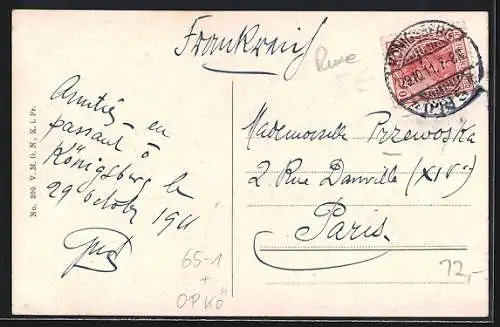 Frankreich
Russe
5€
KÖNIGSBERG
29.10.11.7-8N
10
Amitiés en
passant à
Königsberg le
29 October 1911
Mademoiselle Przewoska
2 Rue Danville (XIVe)
Paris.
No. 290 V. M. G. N. K. i. Pr.
65-1
+
OPKö
12,-